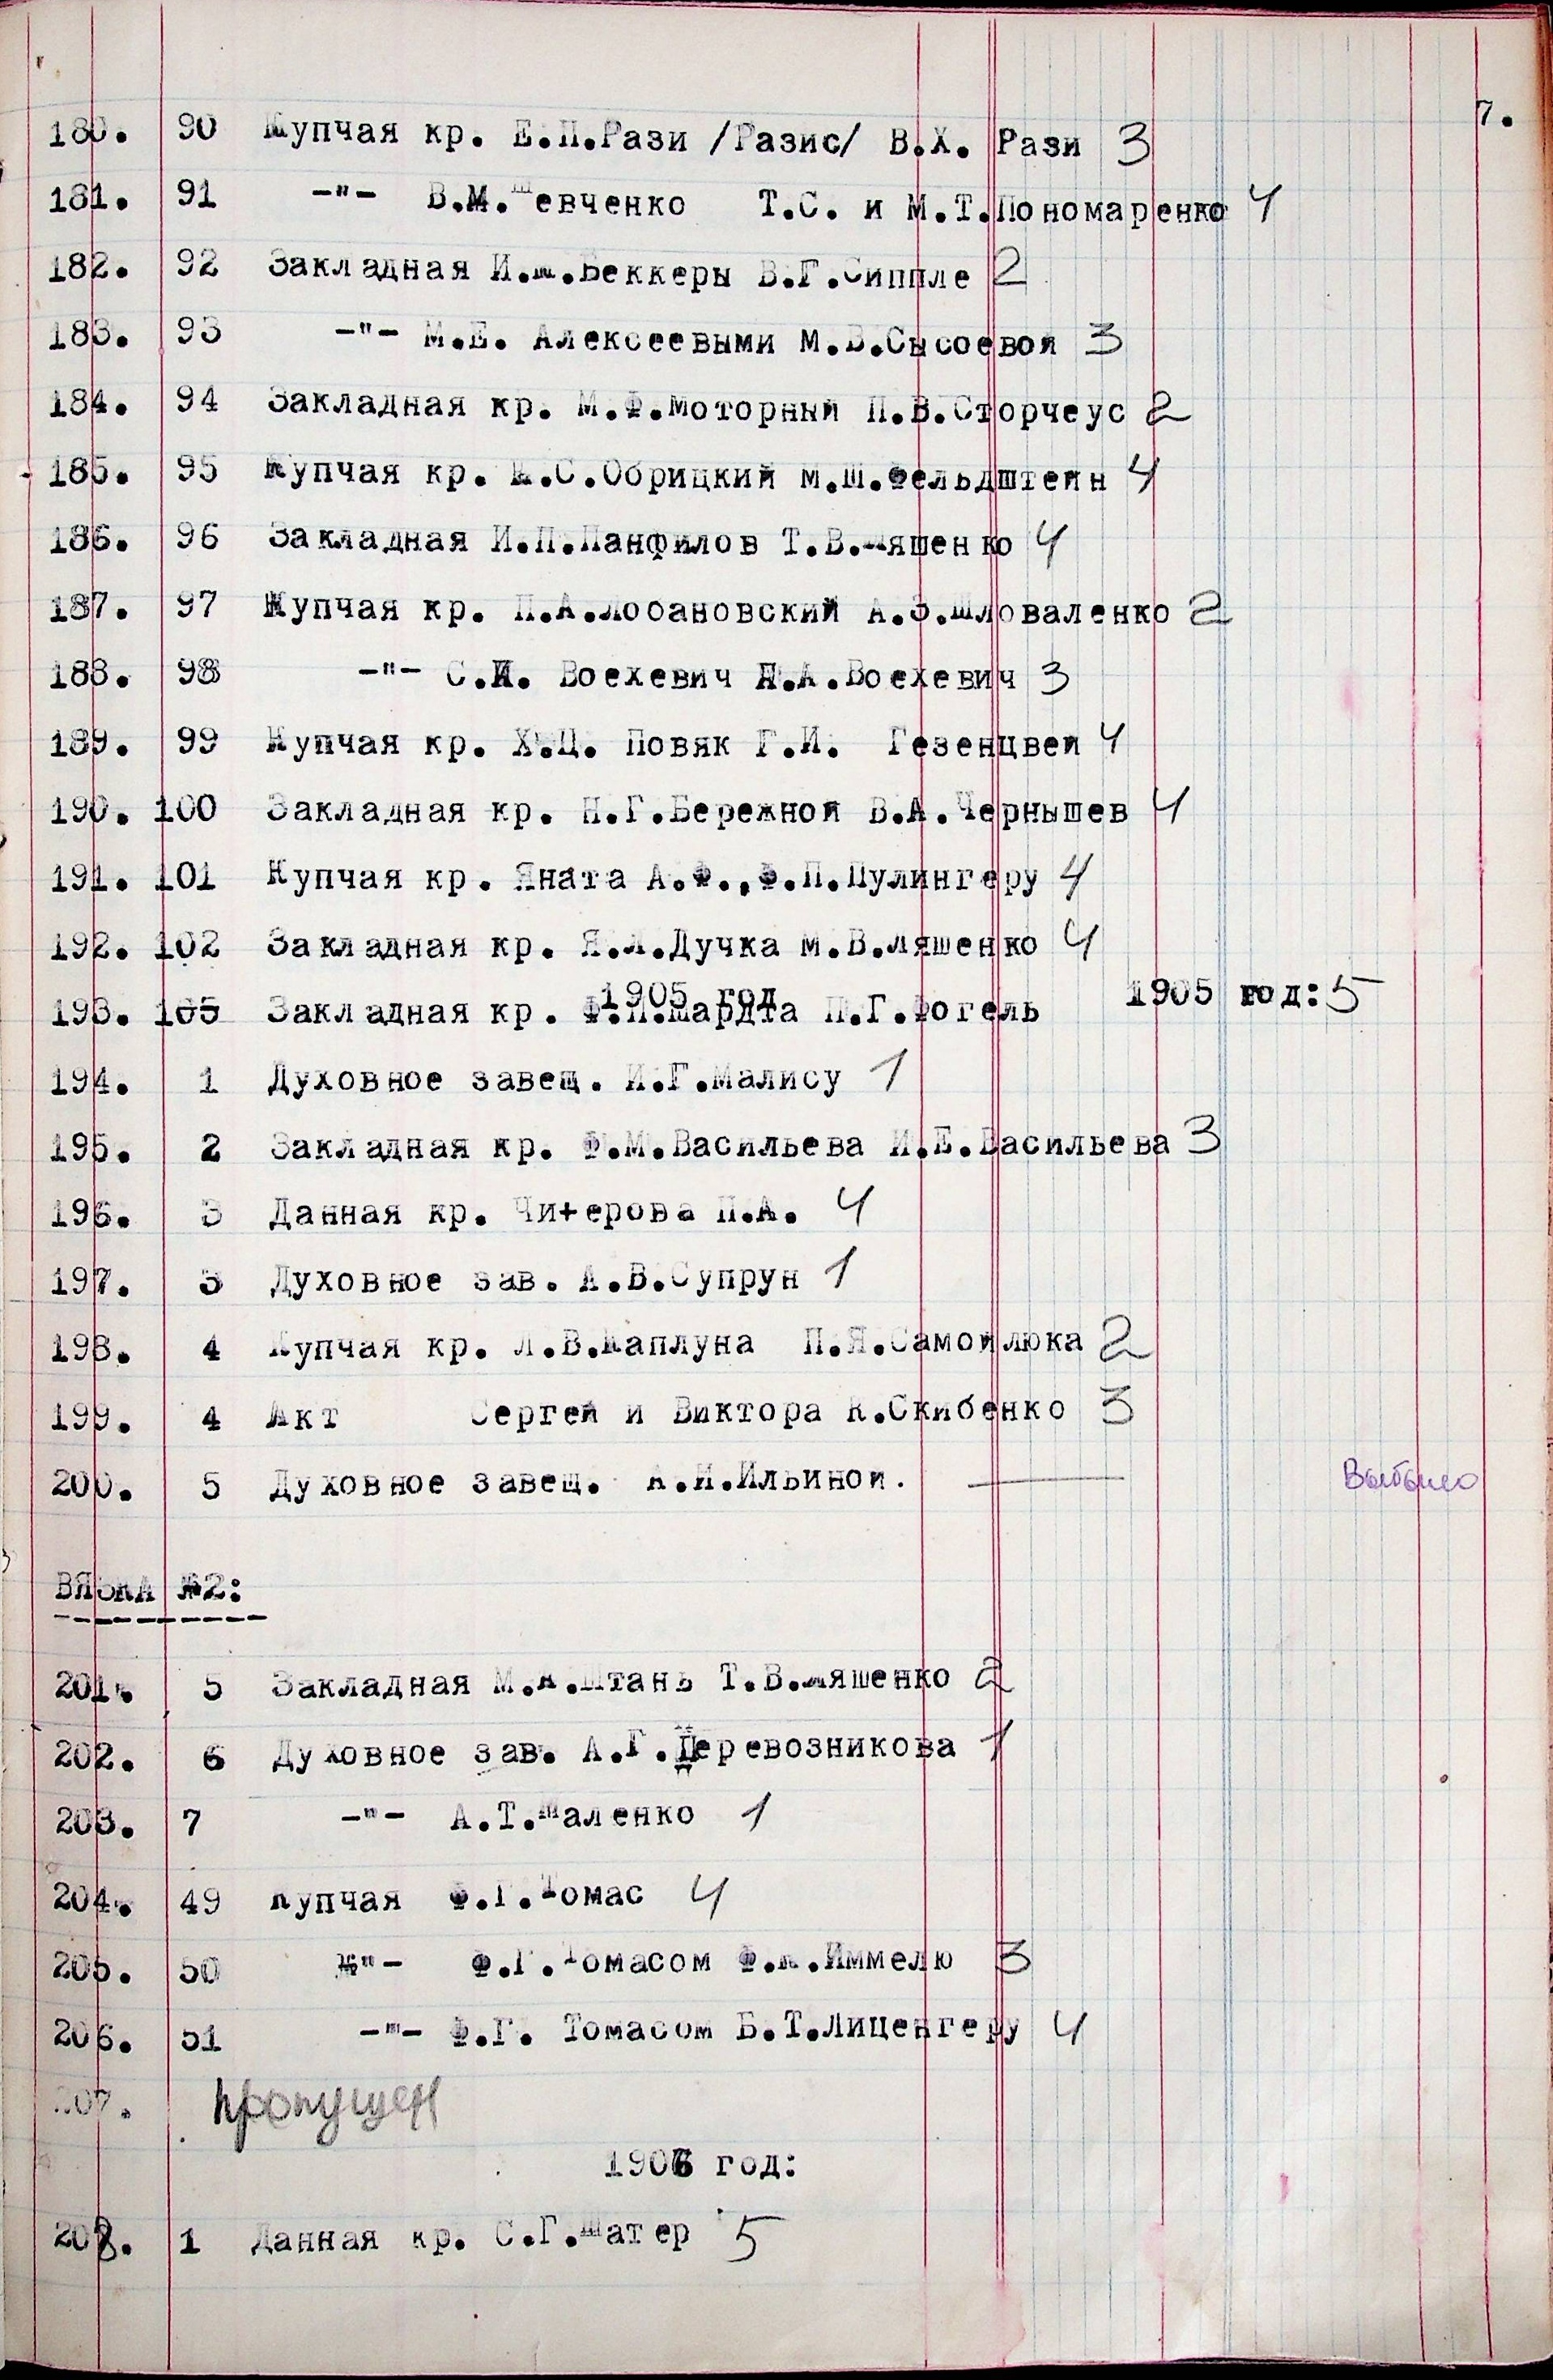 7.
180. 90 Купчая кр. Е.П.Рази /Разис/ В.Х. Рази 3
181. 91 -"- В.М.Шевченко Т.С. и М.Т.Пономаренко 4
182. 92 Закладная И.Ш.Беккеры В.Г.Сиппле 2
183. 93 -"- М.Е. Алексеевыми М.В.Сысоевой 3
184. 94 Закладная кр. М.Ф.Моторный П.В.Сторчеус 2
185. 95 Купчая кр. К.С.Обрицкий М.Ш.Фельдштейн 4
186. 96 Закладная И.П.Панфилов Т.В.Ляшенко 4
187. 97 Купчая кр. П.А.Лобановский А.З.Шловаленко 2
188. 98 -"- С.И. Воехевич П.А.Воехевич 3
189. 99 Купчая кр. Х.Ц. Повяк Г.И. Гезенцвей 4
190. 100 Закладная кр. Н.Г.Бережной В.А.Чернышев 4
191. 101 Купчая кр. Яната А.Ф.,Ф.П.Пулингеру 4
192. 102 Закладная кр. Я.Л.Дучка М.В.Ляшенко 4
1905 год
193. 105 Закладная кр. Ф.И.Шардта П.Г.Фогель 1905 год: 5
194. 1 Духовное завещ. И.Г.Малису 1
195. 2 Закладная кр. Ф.М.Васильева И.Е.Васильева 3
196. 3 Данная кр. Чи+ерова П.А. 4
197. 3 Духовное зав. А.В.Супрун 1
198. 4 Купчая кр. Л.В.Каплуна П.Я.Самойлюка 2
199. 4 Акт Сергея и Виктора К.Скибенко 3
200. 5 Духовное завещ. А.И.Ильиной. — Выбыло
ВЯЗКА №2:
----------
201. 5 Закладная М.А.Штань Т.В.Ляшенко 2
202. 6 Духовное зав. А.Г.Перевозникова 1
203. 7 -"- А.Т.Шаленко 1
204. 49 Купчая Ф.Г.Томас 4
205. 50 -"- Ф.Г.Томасом Ф.К.Иммелю 3
206. 51 -"- Ф.Г. Томасом Б.Т.Лиценгеру 4
207. пропущен
1906 год:
208. 1 Данная кр. С.Г.Шатер 5